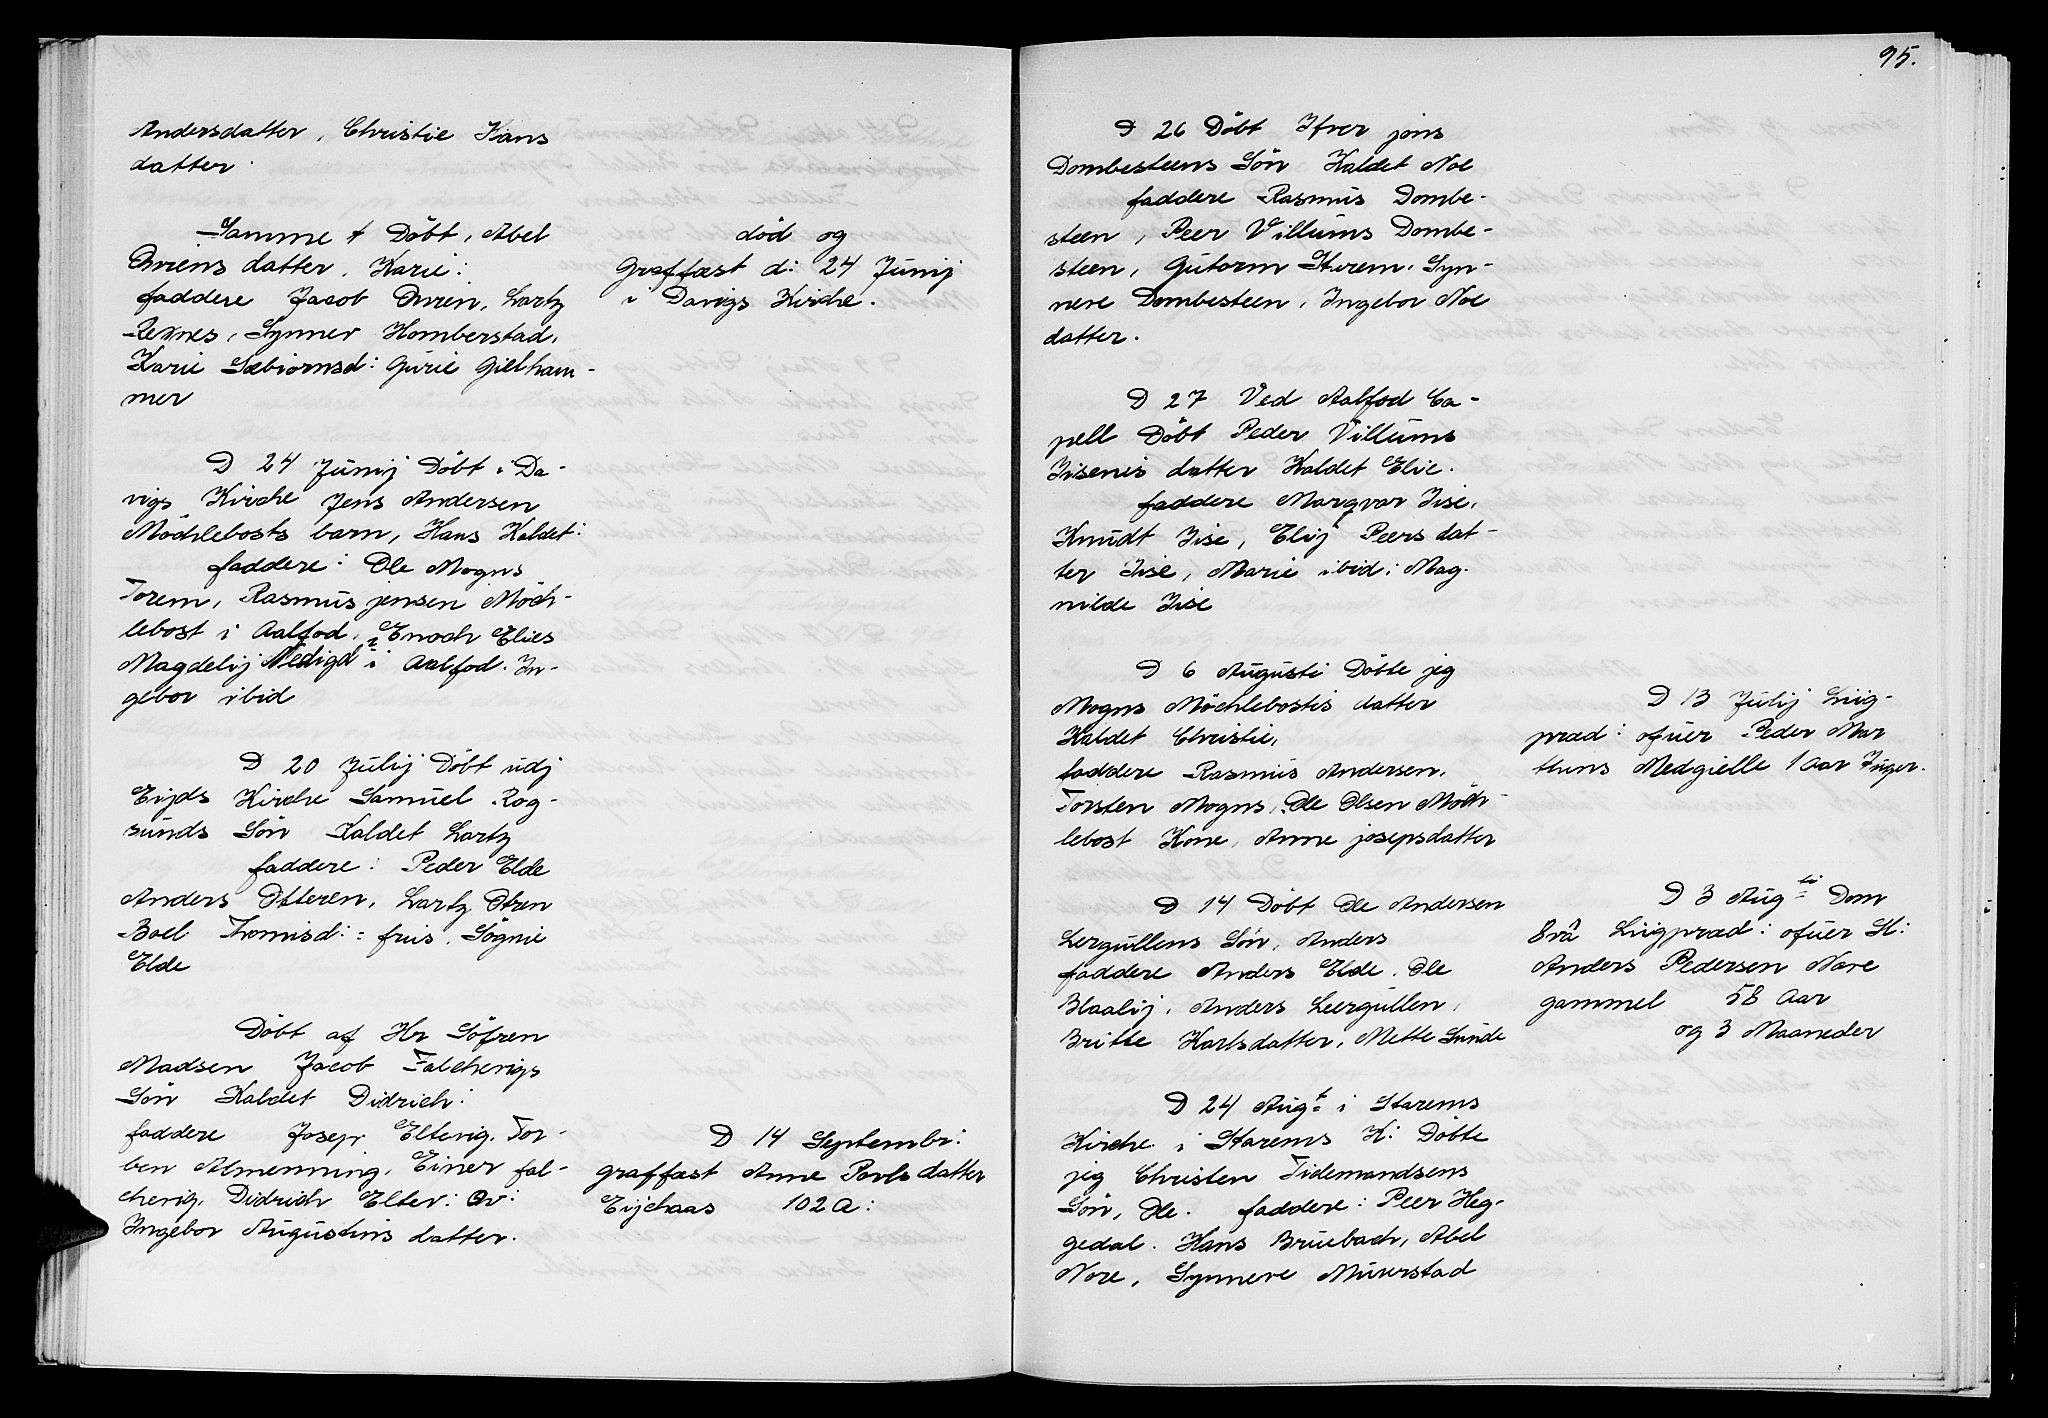 Andersdatter, Christie Hans
datter.
Samme t Döbt, Abel
Qviens datter, Karie:
faddere Jacob Qvien, Lartz
Rexnes, Synner Homberstad,
Karie Sæbiornsd: Gurie Gielham-
mer
D 24 Junij Döbt i Da-
vigs Kirche Jens Andersen
Möchlebosts barn, Hans Kaldet:
faddere: Ole Mogns
Torem, Rasmus jensen Möch-
lebost i Aalfod, Enoch Elies
Magdelij Nedigd i Aalfod. In-
gebor ibid
D 20 Julij Döbt udj
Eijds Kirche Samuel Rog-
sunds Sön Kaldet Lartz
faddere: Peder Elde
Anders Otteren, Lartz Otren
Boel Thomisd: = friis, Sögnie
Elde
Döbt af Hr Söfren
Madsen Jacob Falchevigs
Sön Kaldet Didrich:
faddere Josep Eltevig, Tor-
ben Almenning, Einer fal-
chevig, Didrich Eltev: Qv:
Ingebor Augustins datter.
död og
Graffæst d: 24 Junij
i Davigs Kirche.
D 14 Septembr:
graffæst Anne Povls datter
Eijehaas 102 A:
95.
D 26 Döbt Ifver jons
Dombesteens Sön Kaldet Noe
faddere Rasmus Dombe-
steen, Peer Villums Dombe-
steen, Gutorm Starem, Syn-
nere Dombesteen, Ingebor Noe
datter.
D 27 Ved Aalfod Ca-
pell Döbt Peder Villums
Iisenis datter Kaldet Elie.
faddere Marqvor Iise,
Knudt Iise, Elij Peers dat-
ter Iise, Marie ibid: Mag-
nilde Iise
D 6 Augusti Döbte jeg
Mogns Möchlebostis datter
Kaldet Christie,
faddere Rasmus Andersen,
Torsten Mogns, Ole Olsen Möch-
lebost Kone, Anne josepsdatter
D 14 Döbt Ole Andersen
Leergullens Sön, Anders
faddere Anders Elde, Ole
Blaalij, Anders Leergullen,
Britte Karlsdatter, Mette Sunde
D 24 Augt i Starems
Kirche i Starems K: Döbte
jeg Christen Tidemandsens
Sön, Ole. faddere: Peer Heg-
gedal. Hans Bruebach, Abel
Nore, Synnere Muverstad
D 13 Julij Liig-
præd: ofuer Peder Mar
tens Medgielle 1 Aar Iuger.
D 3 Augti Dom
8va Liigpræd: ofuer Sl:
Anders Pedersen Nore
gammel 58 Aar
og 3 Maaneder